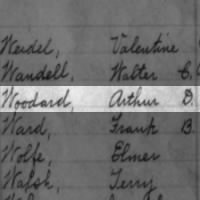 Weidel, Valentine
Wandell, Walter C.
Woodard, Arthur D.
Ward, Frank B.
Wolfe, Elmer
Walsh, Terry